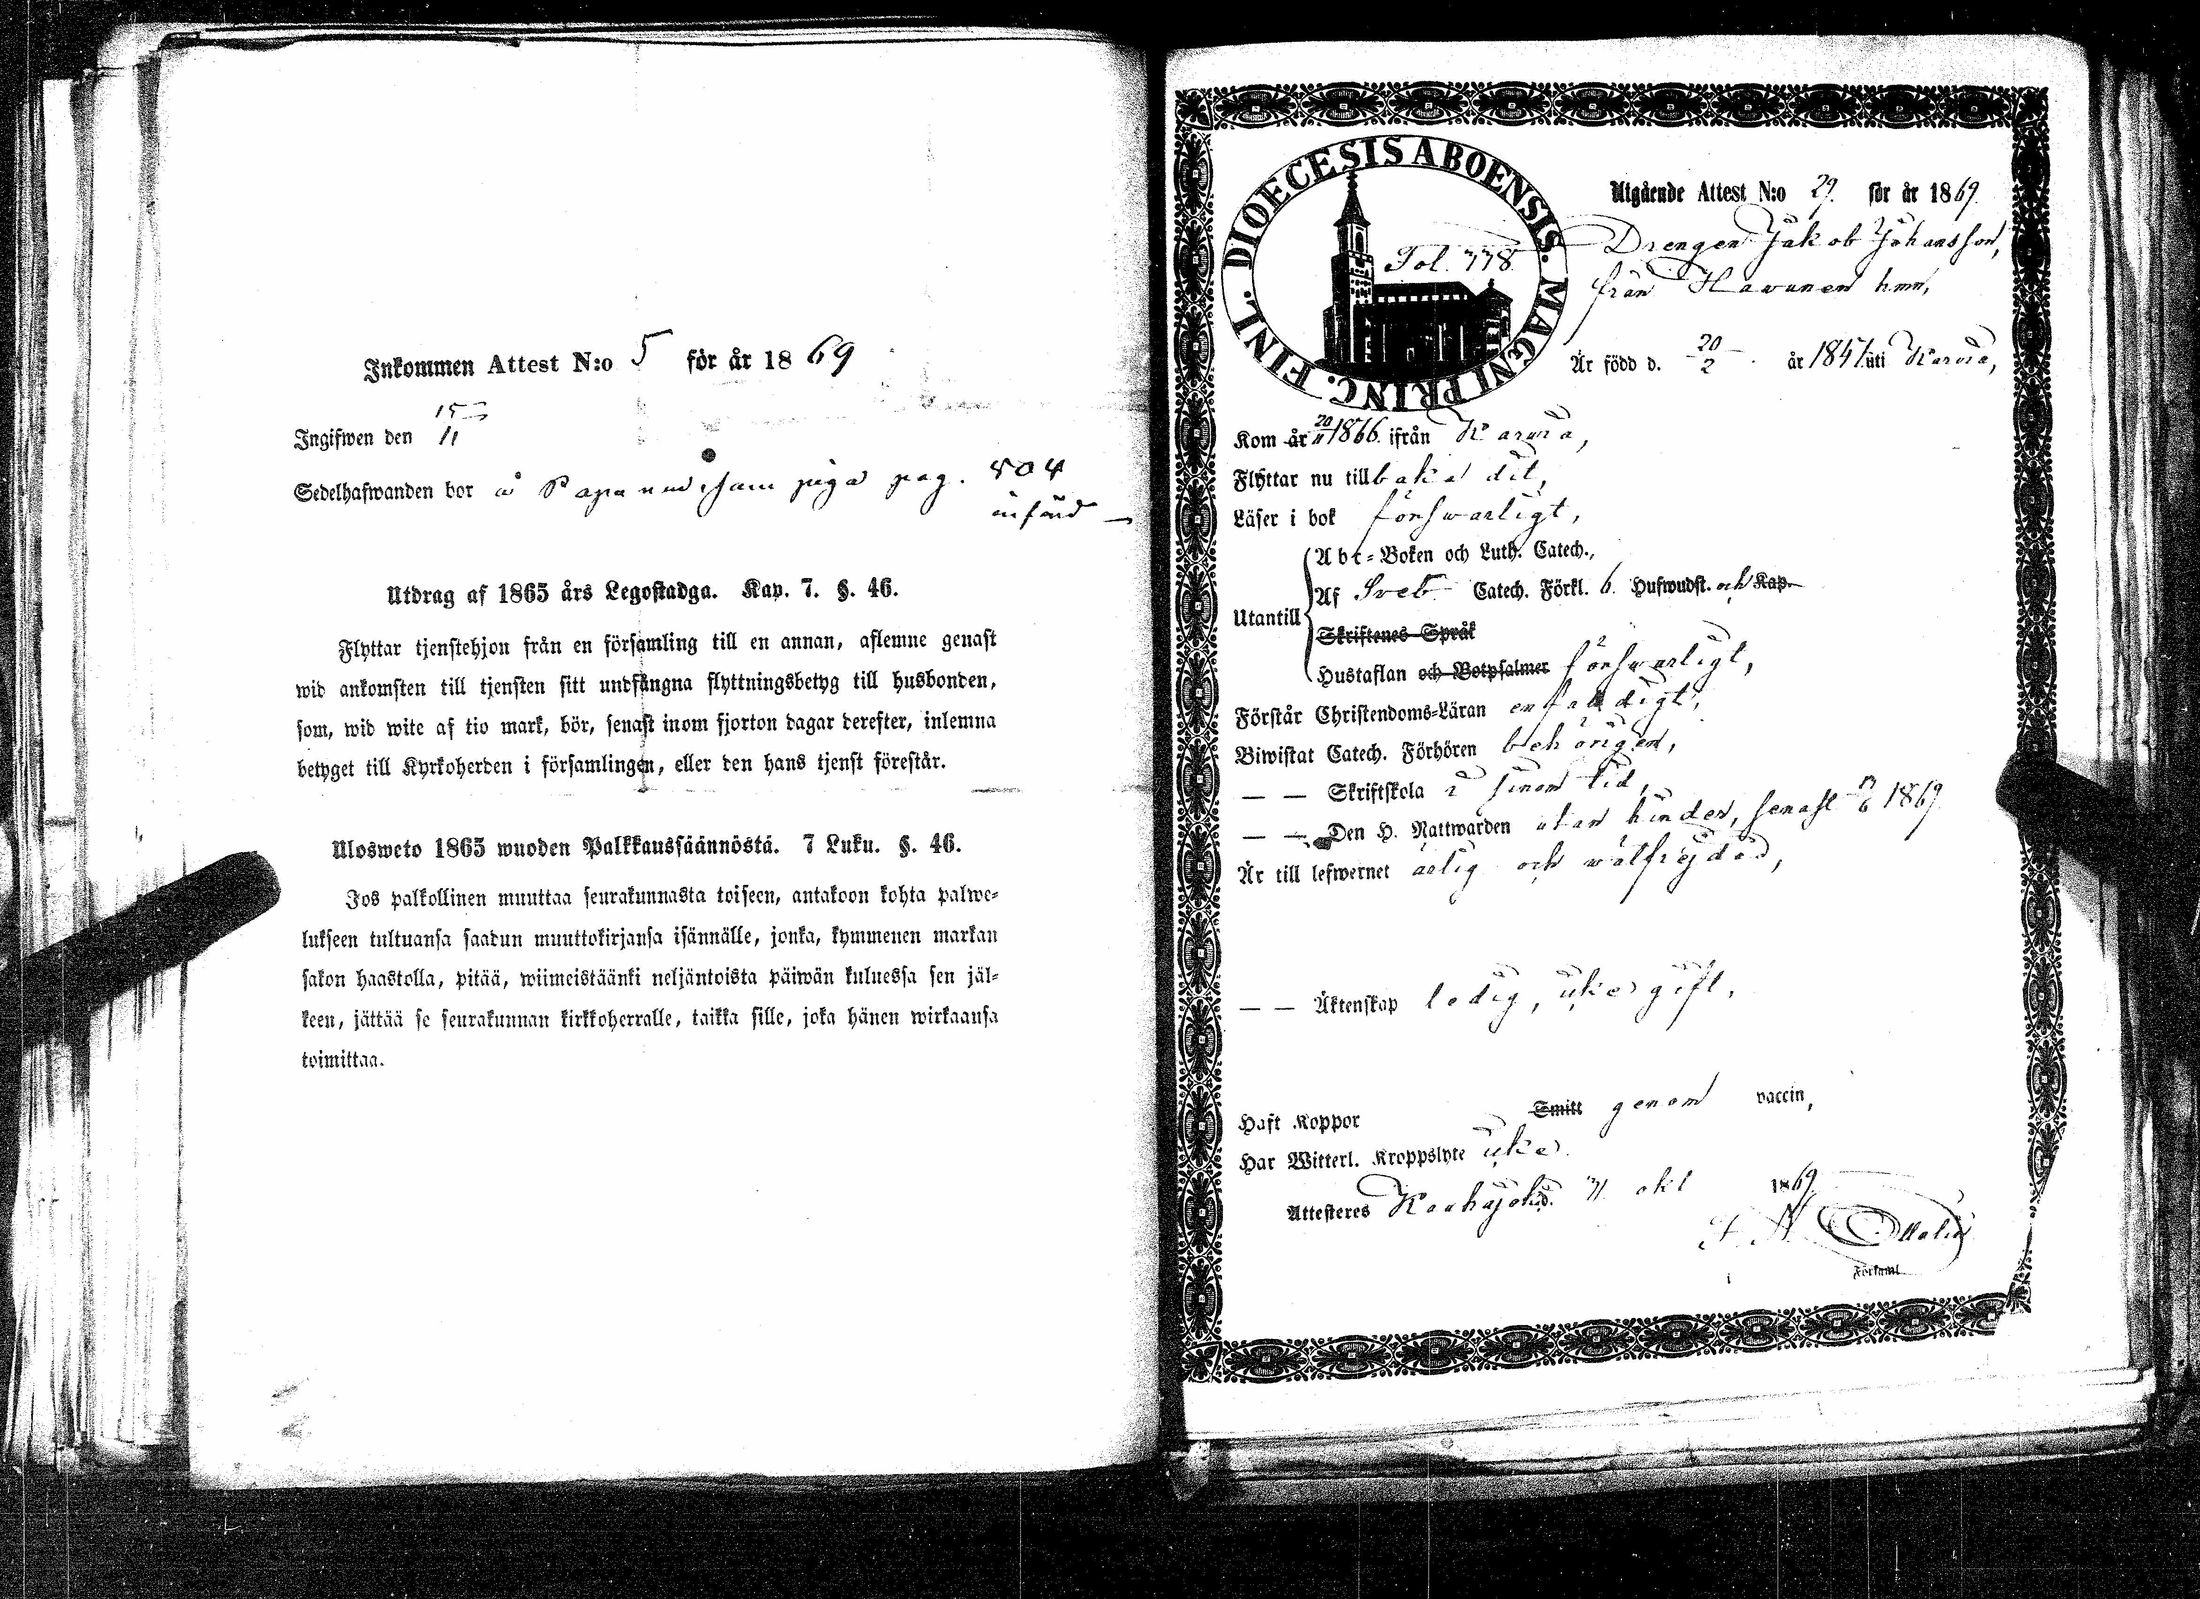 Inkommen Attest N:o 5 för år 1869
Ingifwen den 15/11
Sedelhafwanden bor å som piga pag. 504
införd
Utdrag af 1865 års Legostadga. Kap. 7. §. 46.
Flyttar tjenstehjon från en församling till en annan, aflemne genast
wid ankomsten till tjensten sitt undfångna flyttningsbetyg till husbonden,
som, wid wite af tio mark, bör, senast inom fjorton dagar derefter, inlemna
betyget till Kyrkoherden i församlingen, eller den hans tjenst förestår.
Ulosweto 1865 wuoden Palkkaussäännöstä. 7 Luku. §. 46.
Jos palkollinen muuttaa seurakunnasta toiseen, antakoon kohta palwe-
lukseen tultuansa saadun muuttokirjansa isännälle, jonka, kymmenen markan
sakon haastolla, pitää, wiimeistäänki neljäntoista päiwän kuluessa sen jäl-
keen, jättää se seurakunnan kirkkoherralle, taikka sille, joka hänen wirkaansa
toimittaa.
DIOECESIS ABOENSIS. MAGNI PRINC. FINL.
Fol. 778.
Utgående Attest N:o 29. för år 1869.
Drengen Jakob Johansson,
från Havunen hmn,
Är född d. 20/2 år 1847 uti Karvia,
Kom år 20/11 1866 ifrån Karvia,
Flyttar nu tillbaka dit,
Läser i bok försvarligt,
Utantill
Abc-Boken och Luth. Catech.,
Af Sveb. Catech. Förkl. 6. Hufwudst. och Kap.
Skriftenes Språk
Hustaflan och Botpsalmer försvarligt,
Förstår Christendoms-Läran enfaldigt,
Biwistat Catech. Förhören behörigen,
— — Skriftskola i sinom tid,
— — Den H. Nattwarden utan hinder, senast 1869
Är till lefwernet ärlig och välfrejdad,
— — Äktenskap ledig, icke gift,
Haft Koppor Smitt genom vaccin,
Har Witterl. Kroppslyte icke.
Attesteras Kauhajoki d. 31 okt 1869.